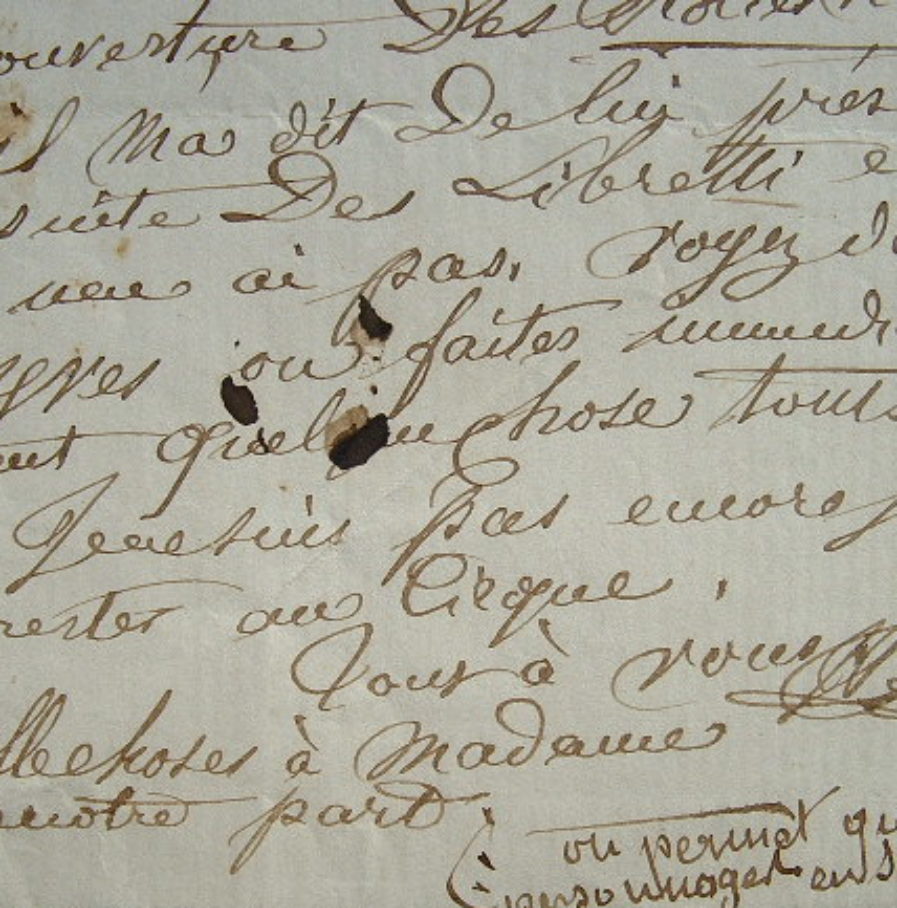 ouverture Des
il Ma dit De lui prés
suite Des Libretti e
nen ai pas. Voyez d
ou faites
ent quelque chose tout
Je ne suis Pas encore
rester au Cirque.
Tout à vous
lle choses à Madame
notre part
on permet qu
personnages en s